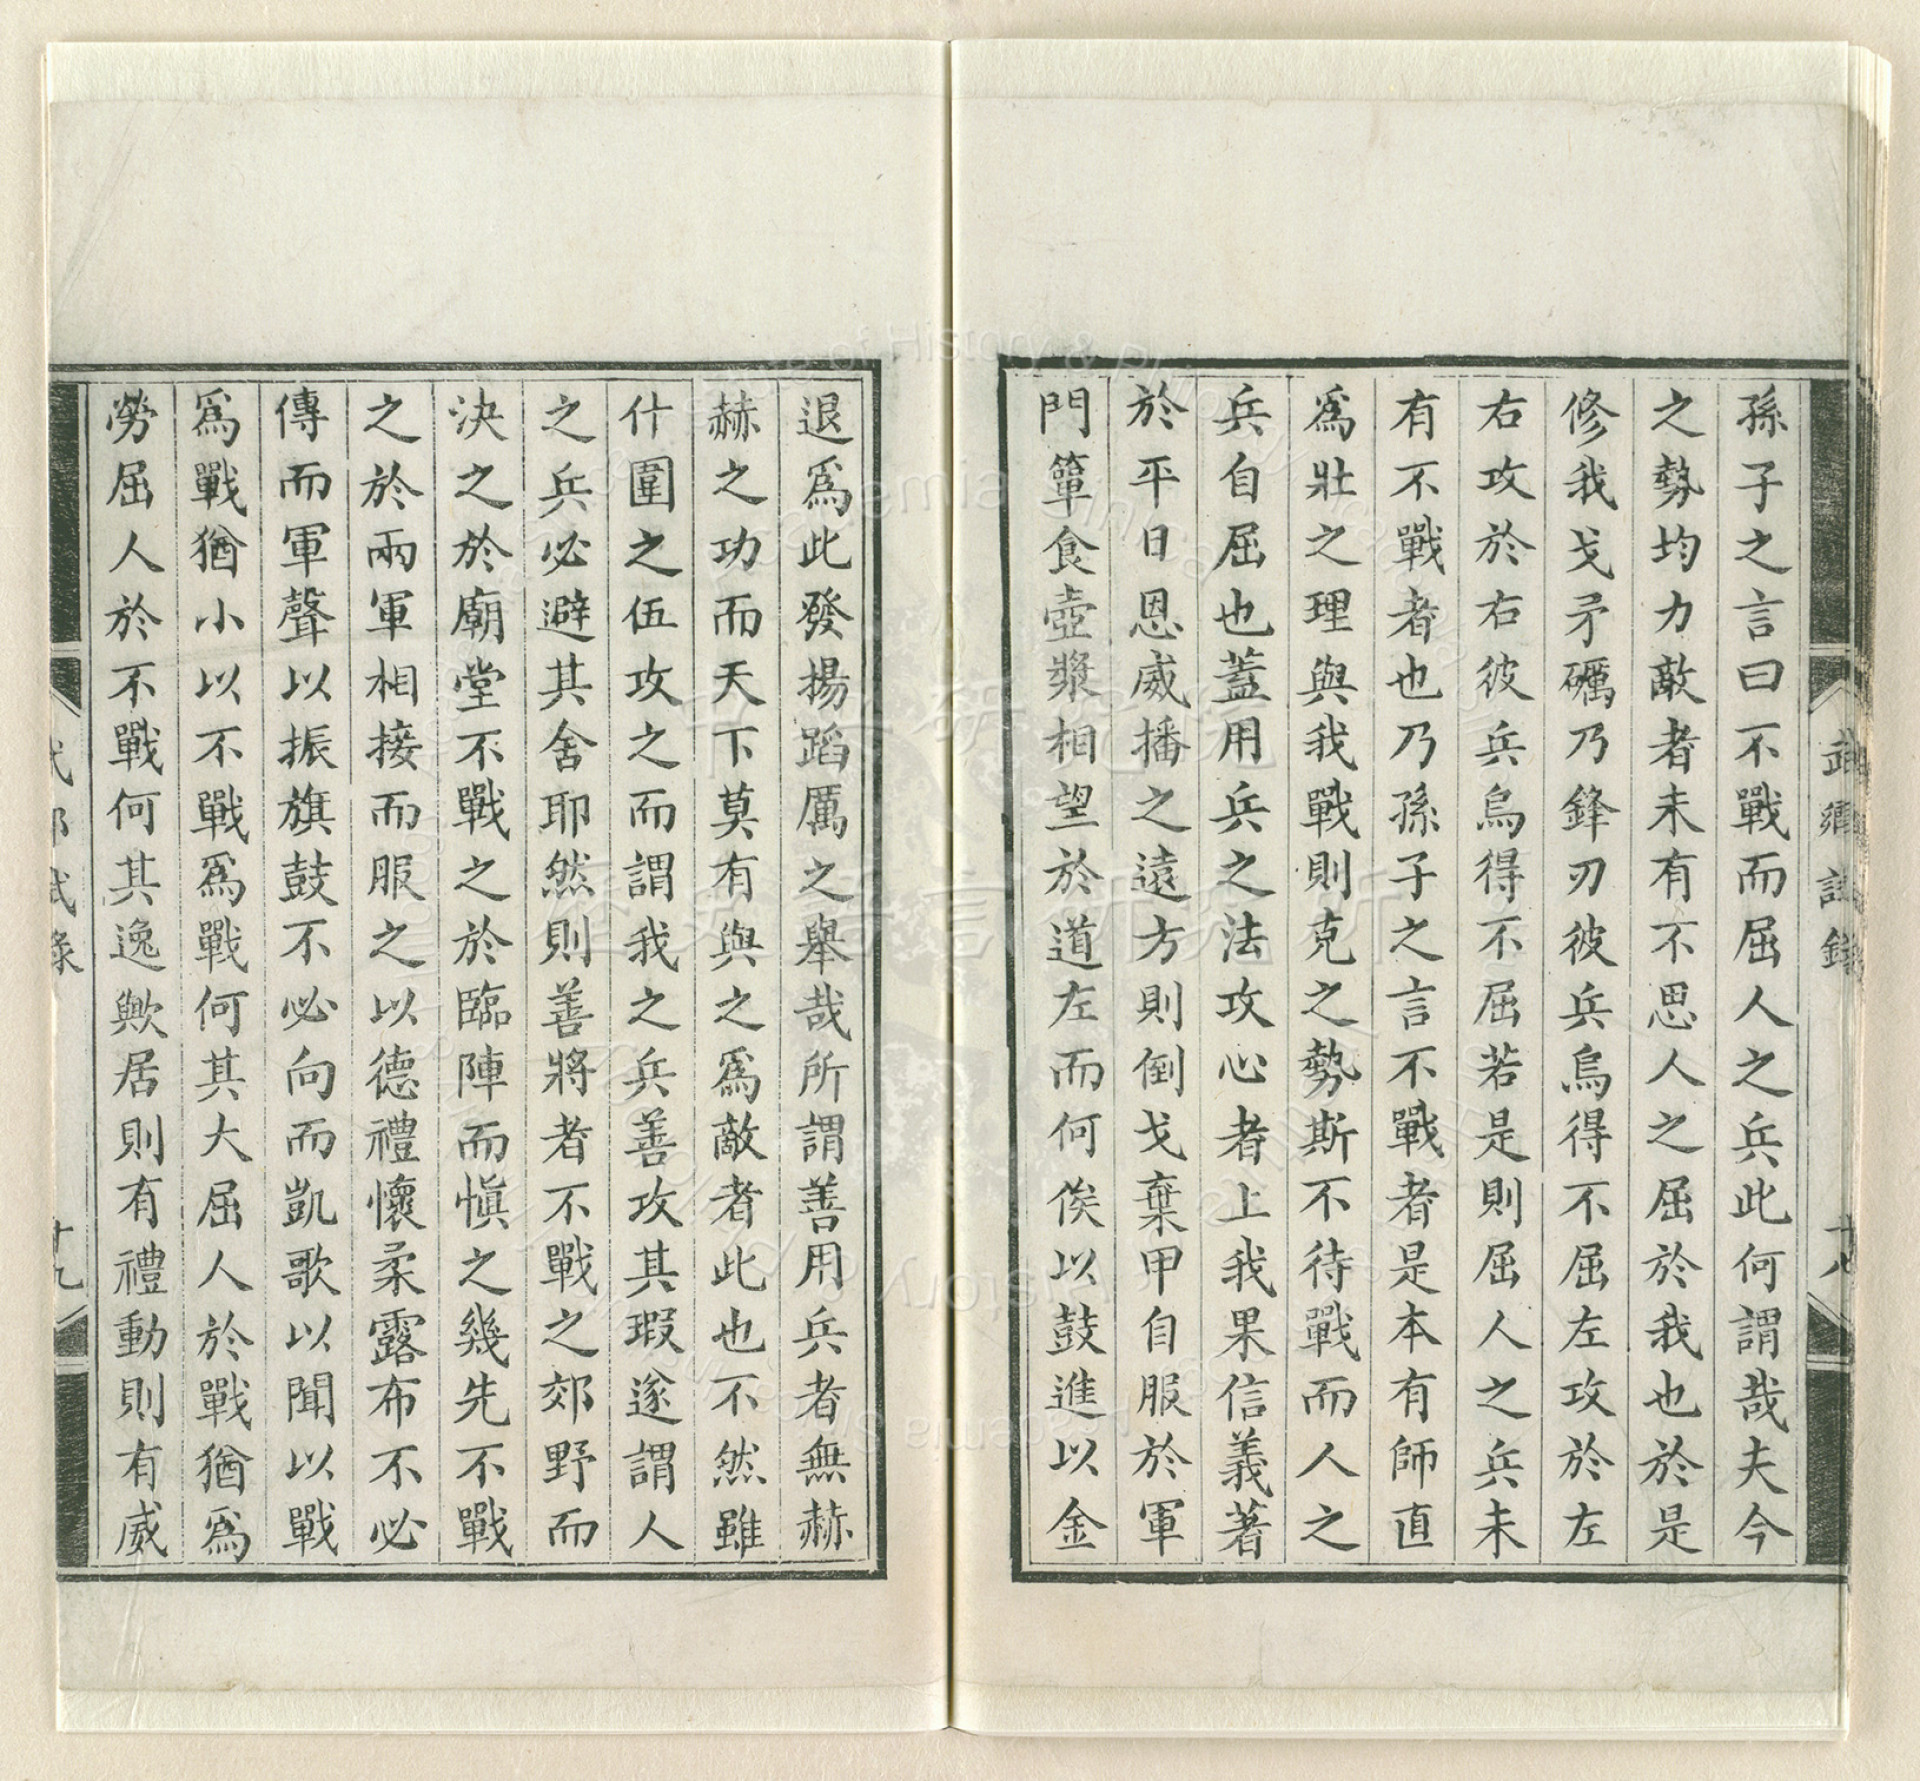 武鄉試錄
十八
孫子之言曰不戰而屈人之兵此何謂哉夫今
之勢均力敵者未有不思人之屈於我也於是
修我戈矛礪乃鋒刃彼兵烏得不屈左攻於左
右攻於右彼兵烏得不屈若是則屈人之兵未
有不戰者也乃孫子之言不戰者是本有師直
爲壯之理與我戰則克之勢斯不待戰而人之
兵自屈也蓋用兵之法攻心者上我果信義著
於平日恩威播之遠方則倒戈棄甲自服於軍
門簞食壺漿相望於道左而何俟以鼓進以金
退爲此發揚蹈厲之舉哉所謂善用兵者無赫
赫之功而天下莫有與之爲敵者此也不然雖
什圍之伍攻之而謂我之兵善攻其瑕遂謂人
之兵必避其舍耶然則善將者不戰之郊野而
決之於廟堂不戰之於臨陣而愼之幾先不戰
之於兩軍相接而服之以德禮懷柔露布不必
傳而軍聲以振旗鼓不必向而凱歌以聞以戰
爲戰猶小以不戰爲戰何其大屈人於戰猶爲
勞屈人於不戰何其逸歟居則有禮動則有威
武鄉試錄
十九